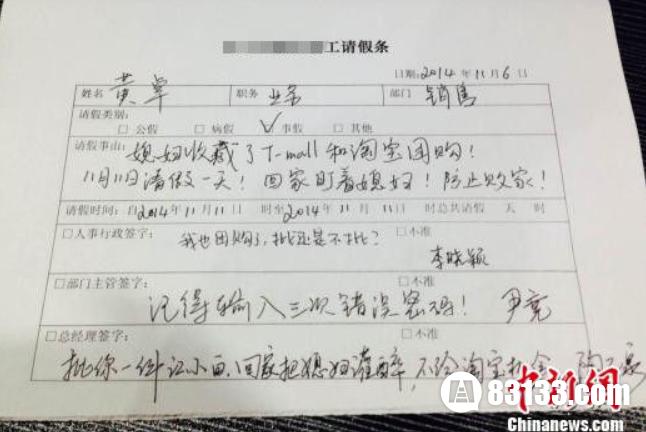 工请假条
日期:2014年11月6日
姓名 黄卓 职务 业务 部门 销售
请假类别:
□公假 □病假 ✓事假 □其他
请假事由: 媳妇收藏了T-mall和淘宝团购!
11月11日请假一天!回家盯着媳妇!防止败家!
请假时间:自2014年11月11日 时至2014年11月11日 时总共请假 天 时
□人事行政签字: 我也团购了,批还是不批? □不准
李晓颖
□部门主管签字: □不准
记得输入三次错误密码! 尹亮
□总经理签字: □不准
批你一件江小白,回家把媳妇灌醉,不给淘宝
中新网
83133.com
Chinanews.com